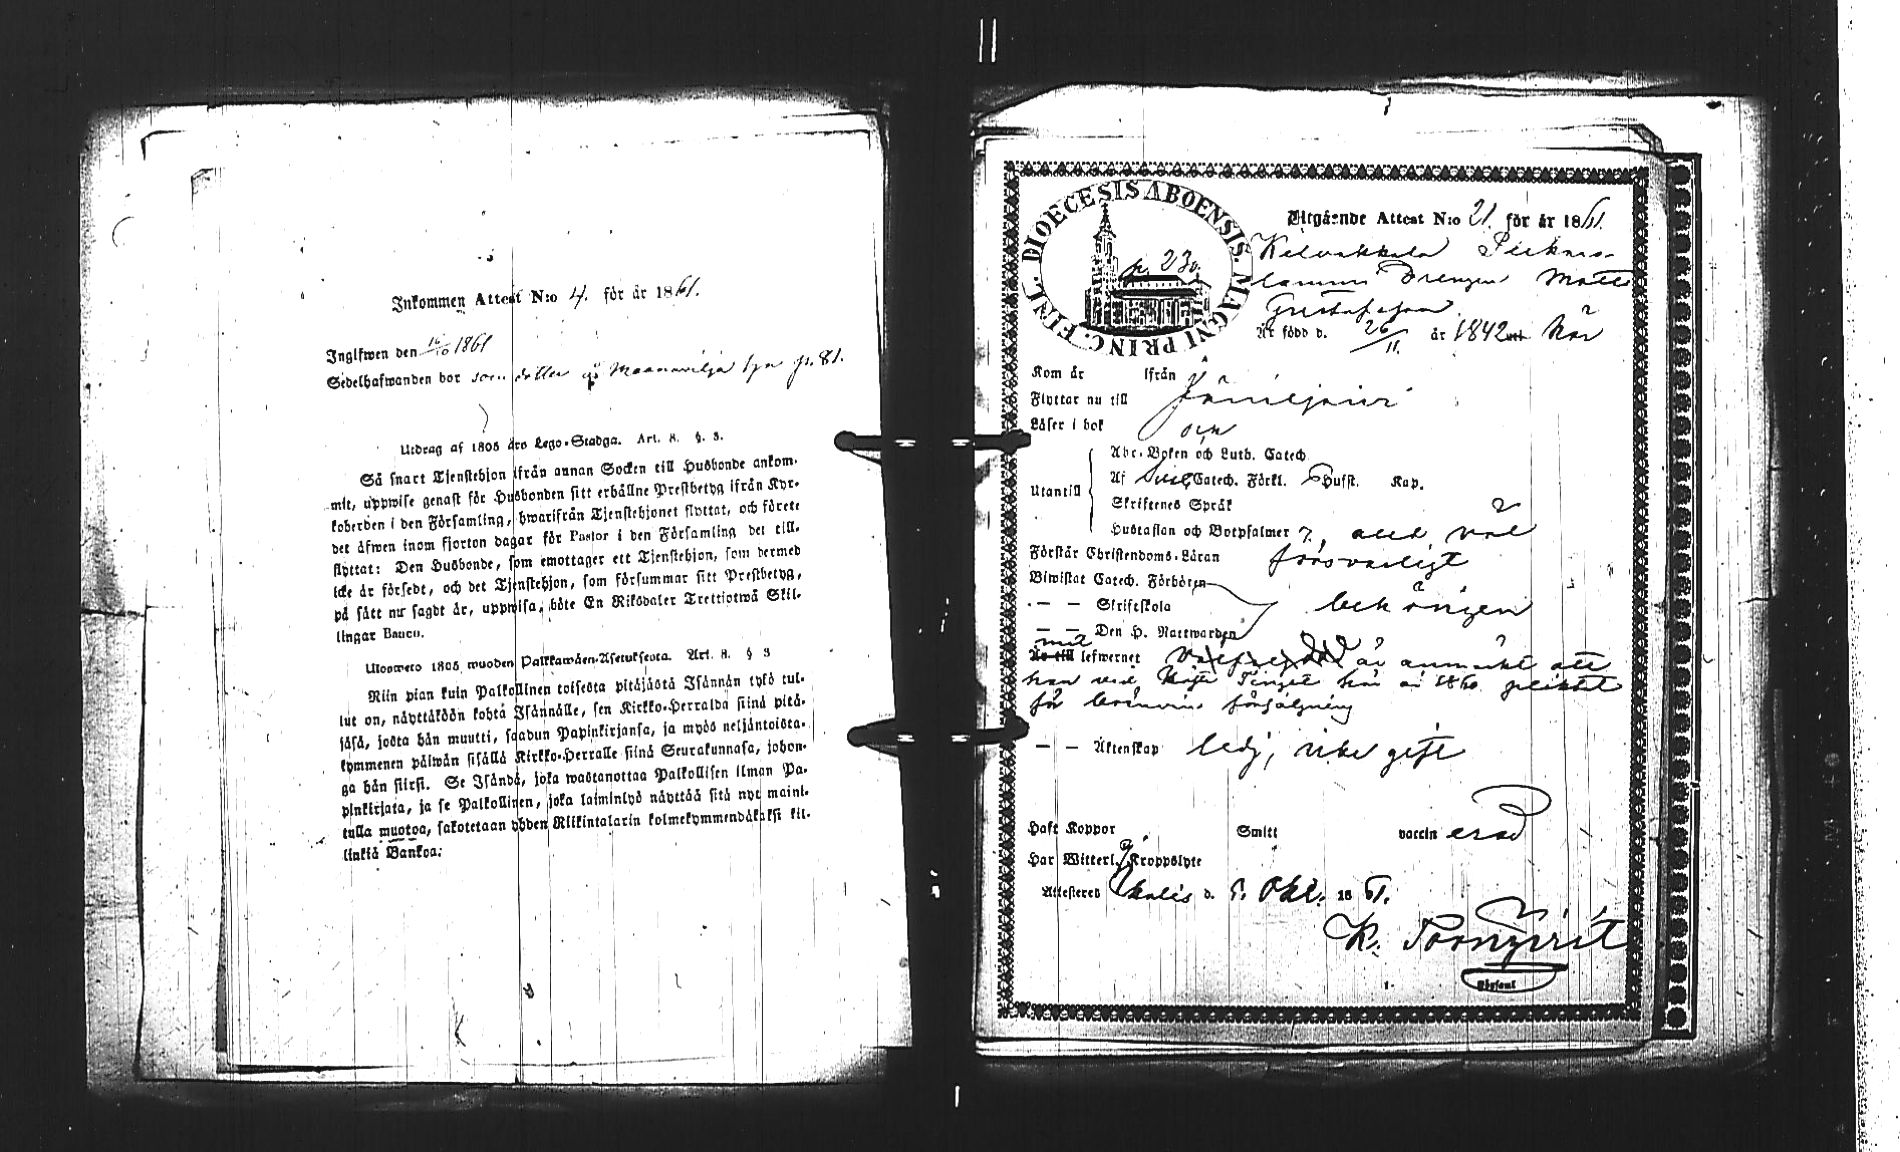 Inkommen Attest N:o 4. för år 1861.
Inglfwen den 16/10 1861
Sedelhafwanden bor som på Maanavilja p. 81.
Utdrag af 1805 års Lego-Stadga. Art. 8. §. 3.
Så snart Tjenstehjon ifrån annan Socken till Husbonde ankom-
mit, uppwise genast för Husbonden sitt erhållne Prestbetyg ifrån Kyr-
koherden i den Församling, hwarifrån Tjenstehjonet flyttat, och förete
det äfwen inom fjorton dagar för Pastor i den Församling det till-
flyttat: Den Husbonde, som emottager ett Tjenstehjon, som dermed
icke är försedt, och det Tjenstehjon, som försummar sitt Prestbetyg,
på sätt nu sagdt är, uppwisa, böte En Riksdaler Trettiotwå Skil-
lingar Banco.
Ulosweto 1805 wuoden Palkkawäen-Asetuksesta. Art. 8. § 3
Niin pian kuin Palkollinen toisesta pitäjästä Isännän tykö tul-
lut on, näyttäköön kohta Isännälle, sen Kirkko-Herralda siinä pitä-
jäsä, josta hän muutti, saadun Papinkirjansa, ja myös neljäntoista-
kymmenen päiwän sisällä Kirkko-Herralle siinä Seurakunnasa, johon-
ga hän siirsi. Se Isändä, joka wastanottaa Palkollisen ilman Pa-
pinkirjata, ja se Palkollinen, joka laiminlyö näyttää sitä nyt maini-
tulla muotoa, sakotetaan yhden Riikintalarin kolmekymmendäkaksi kil-
linkiä Bankoa:
FINL. DIOECESIS ABOENSIS. MAGNI PRINC.
p. 230.
Utgående Attest N:o 21. för år 1861.
Kelvakkala Pirkas-
lammi Drengen Matts
Gustafsson
Är född d. 26/11. år 1842 här
Kom år ifrån
Flyttar nu till Jämijärvi
Läser i bok
Utantill
Abc-Boken och Luth. Catech.
Af Catech. Förkl. Hufst. Kap.
Skriftenes Språk
Hustaflan och Botpsalmer 7, allt väl
Förstår Christendoms-Läran försvarligt
Biwistat Catech. Förhören
— — Skriftskola behörigen
— — Den H. Nattwarden
Är till lefwernet är anmärkt att
han vid Tinget här år 1860 pliktat
för brännvins försäljning
— — Äktenskap ledig, icke gift
Haft Koppor Smitt vaccin erad
Har Witterl. Kroppslyte
Attesteres Ikalis d. 5. Okt. 1861.